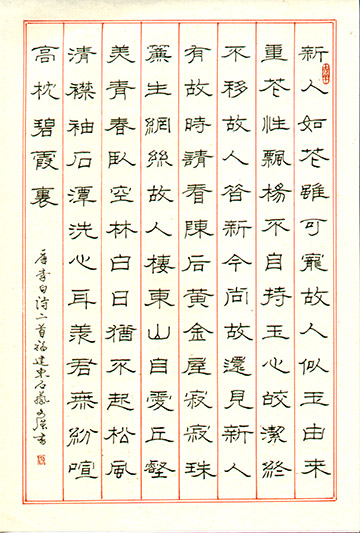 新人如花雖可寵故人似玉由來
重花性飄楊不自持玉心皎潔終
不移故人昔新今尚故還見新人
有故時請看陳后黃金屋寂寂珠
簾生網絲故人棲東山自愛丘壑
美青春臥空林白日猶不起松風
清襟袖石潭洗心耳羨君無紛喧
高枕碧霞裏
唐李白詩二首福建東石蔡